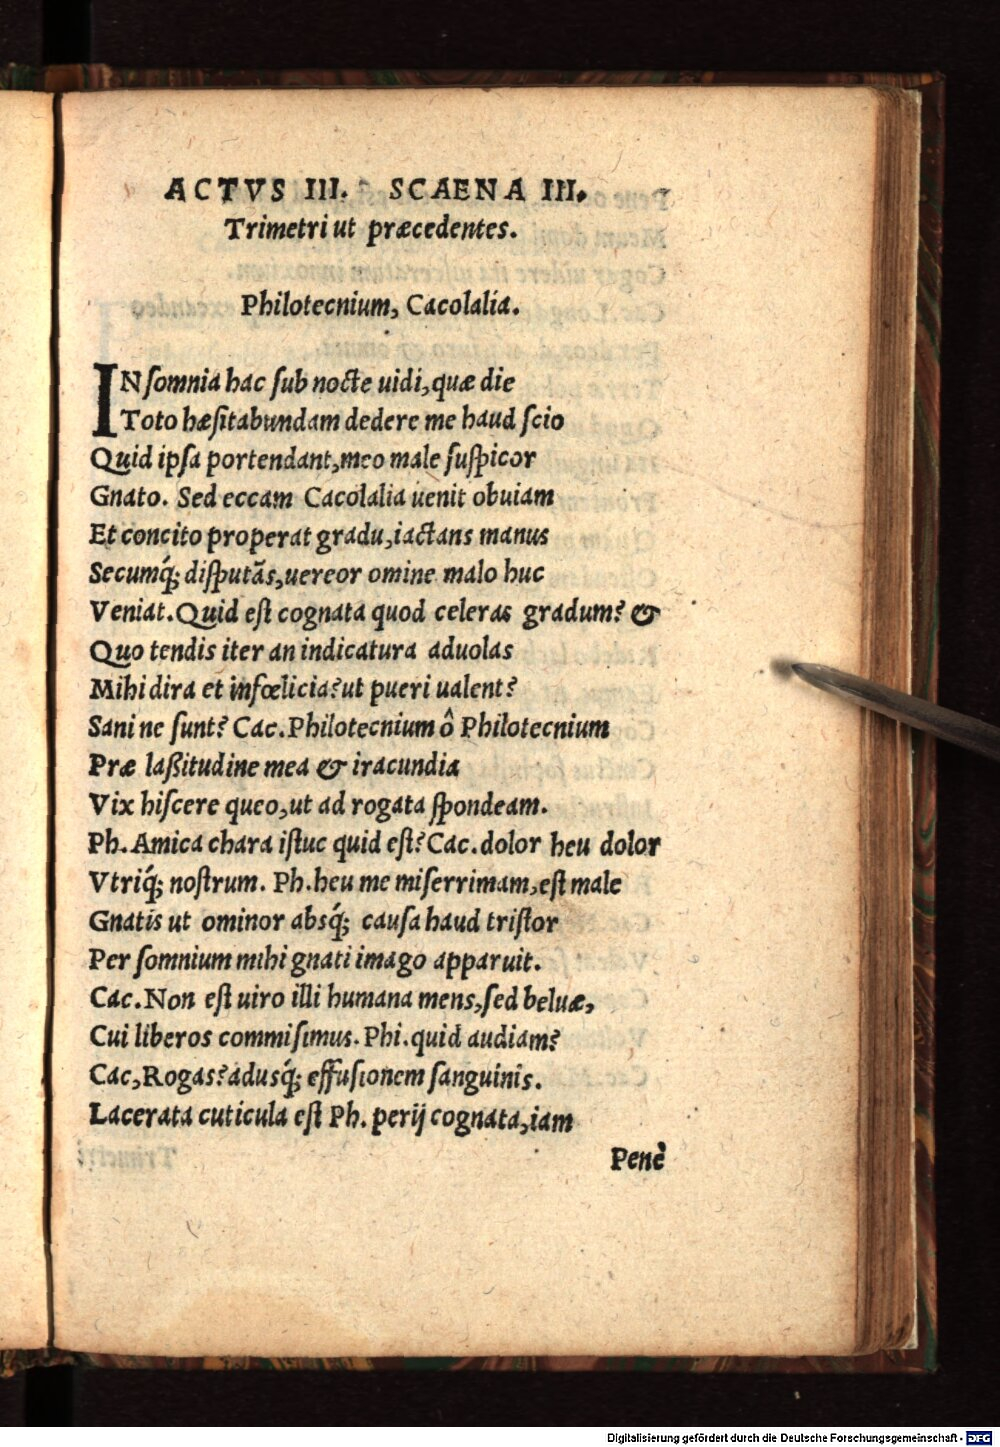 ACTVS III. SCAENA III.
Trimetri ut præcedentes.
Philotecnium, Cacolalia.
INſomnia hac ſub nocte uidi, quæ die
Toto hæſitabundam dedere me haud ſcio
Quid ipſa portendant, meo male ſuſpicor
Gnato. Sed eccam Cacolalia uenit obuiam
Et concito properat gradu, iactans manus
Secumq́; diſputãs, uereor omine malo huc
Veniat. Quid eſt cognata quod celeras gradum? &
Quo tendis iter an indicatura aduolas
Mihi dira et infœlicia? ut pueri ualent?
Sani ne ſunt? Cac. Philotecnium ô Philotecnium
Præ laßitudine mea & iracundia
Vix hiſcere queo, ut ad rogata ſpondeam.
Ph. Amica chara iſtuc quid eſt? Cac. dolor heu dolor
Vtriq́; noſtrum. Ph. heu me miſerrimam, eſt male
Gnatis ut ominor absq́; cauſa haud triſtor
Per ſomnium mihi gnati imago apparuit.
Cac. Non eſt uiro illi humana mens, ſed beluæ,
Cui liberos commiſimus. Phi. quid audiam?
Cac, Rogas? adusq́; effuſionem ſanguinis.
Lacerata cuticula eſt Ph. perij cognata, iam
Penè
Digitalisierung gefördert durch die Deutsche Forschungsgemeinschaft - DFG